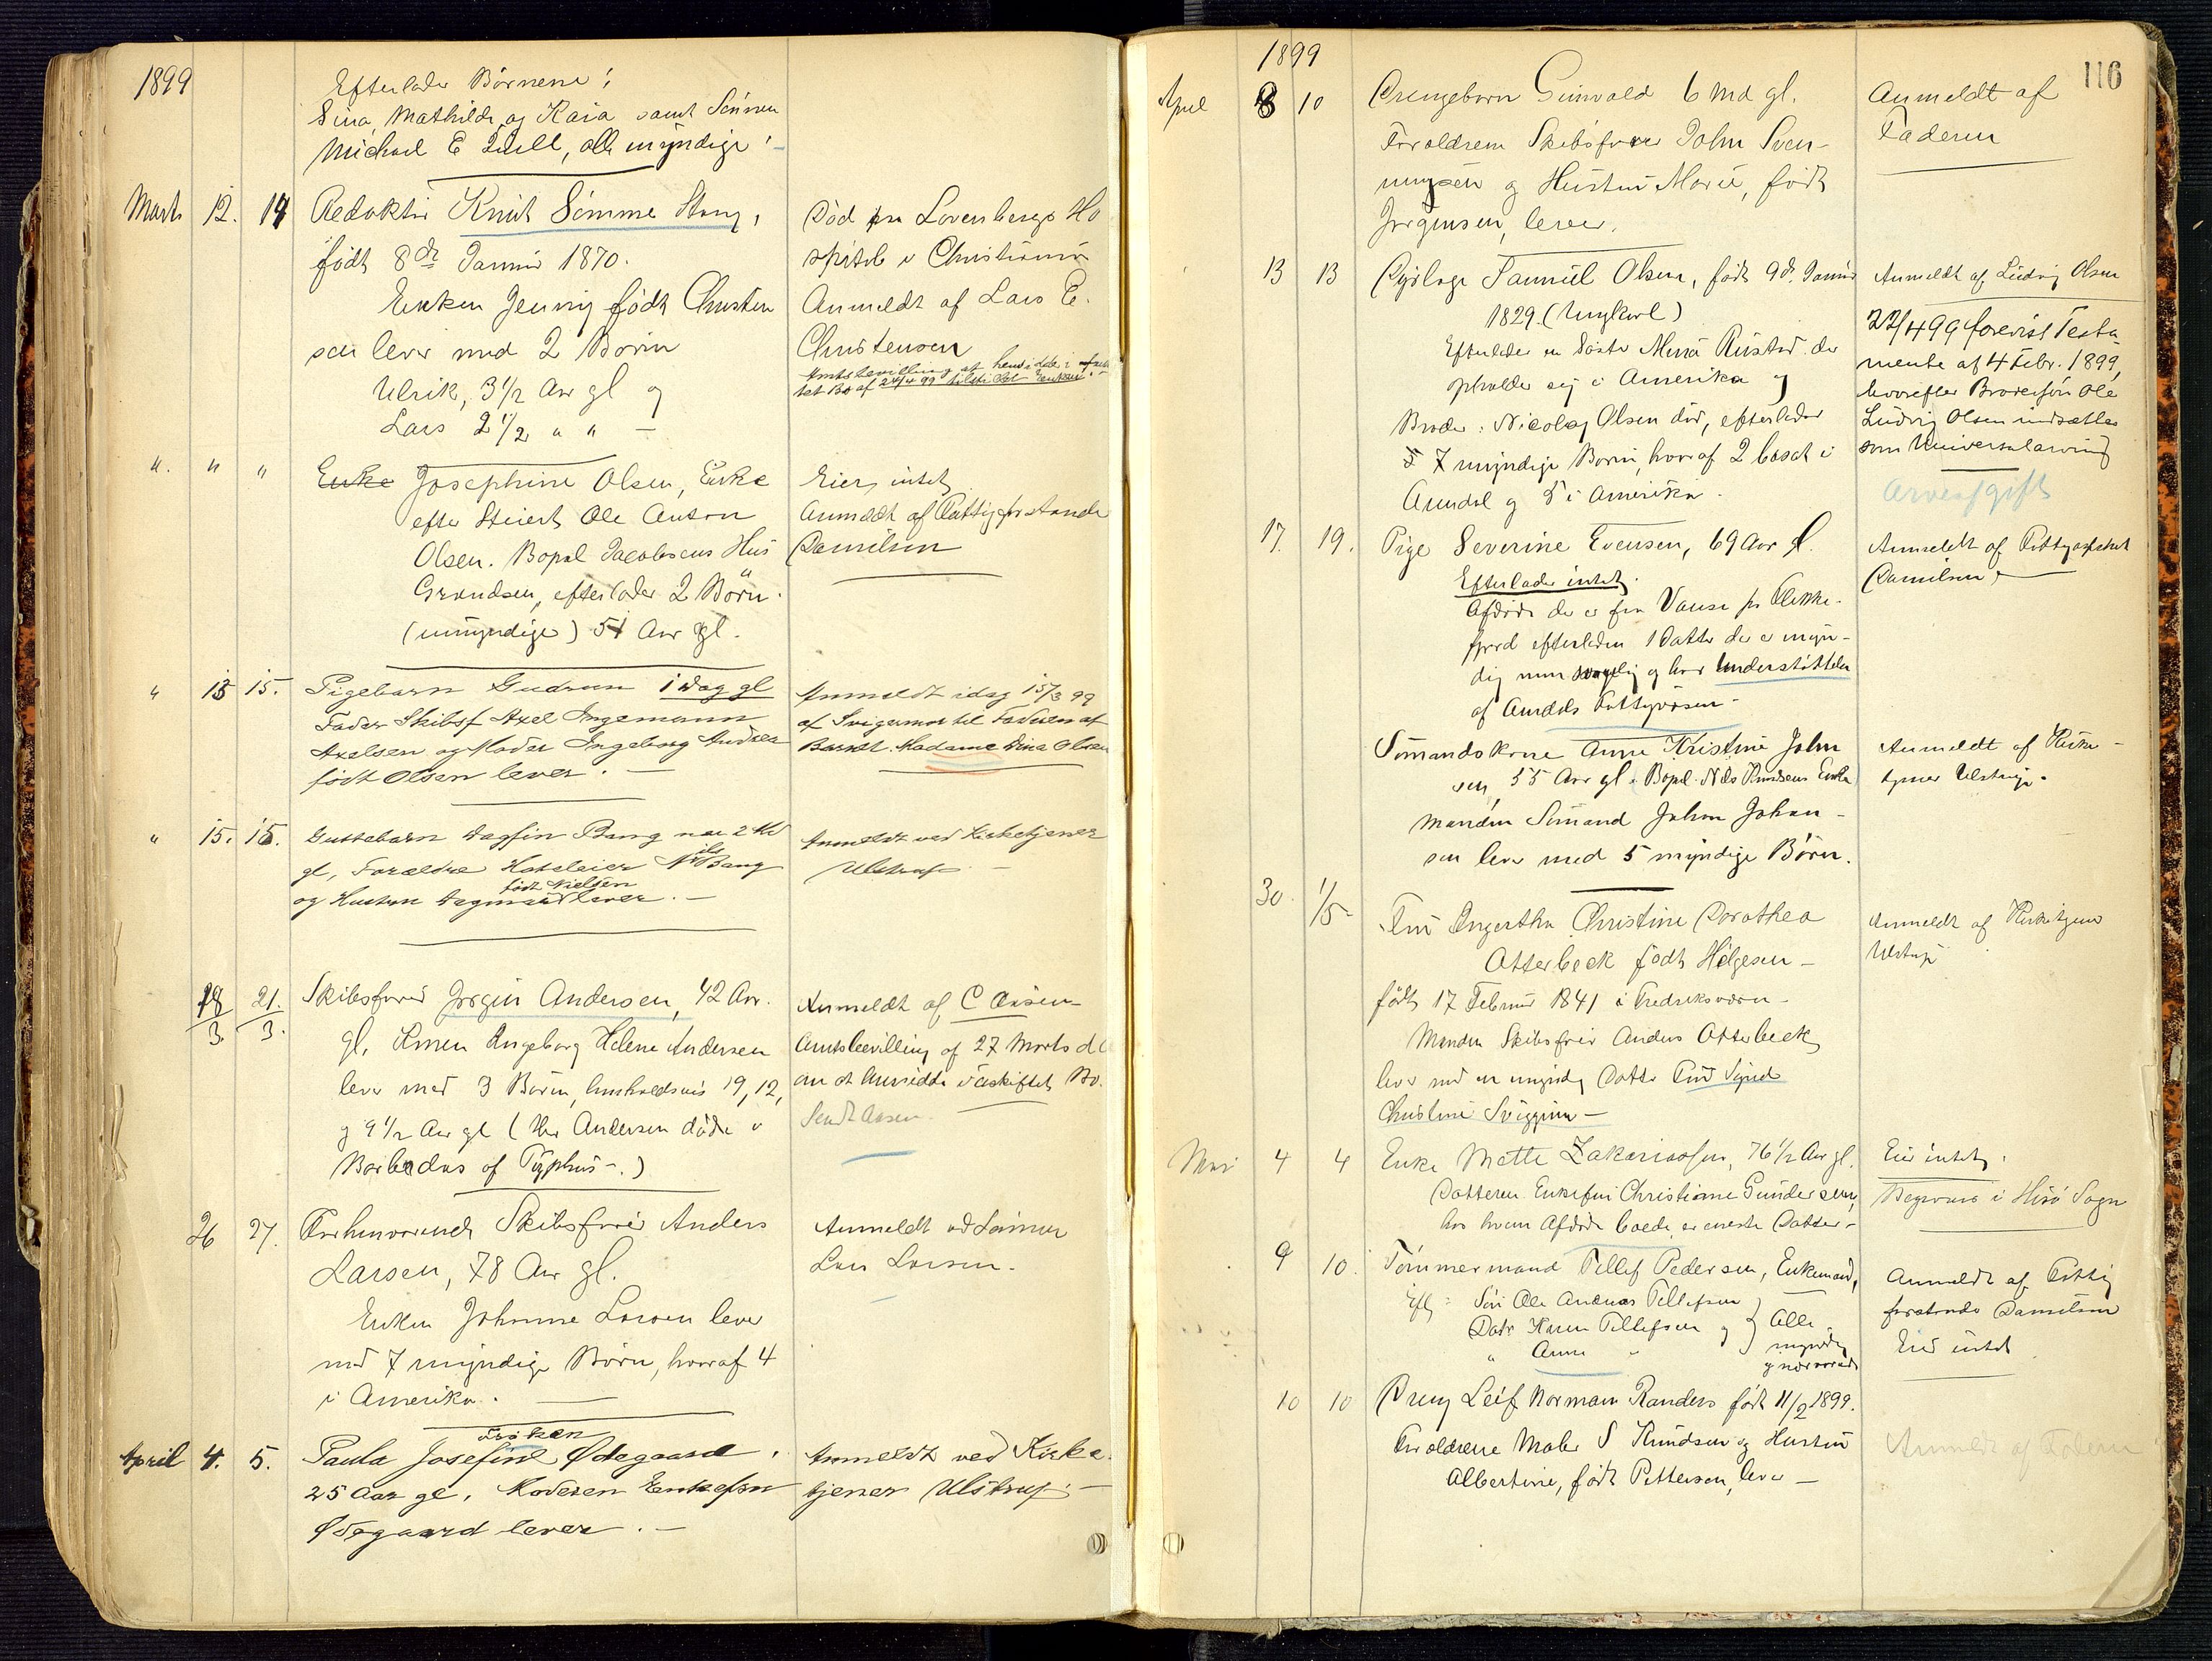 1899
Efterlader Børnene:
Sina, Mathilde og Kaia samt Sønnen
Michael E Tuell, alle myndige.
Marts 12. 14 Redaktør Knut Sømme Stang,
født 8de Januar 1870.
Enken Jenny født Christen
sen lever med 2 Børn
Ulrik, 3 1/2 Aar gl og
Lars 2 1/2 " " —
Død paa Lovenbergs Ho
spital i Christiania
Anmeldt af Lars E.
Christensen
Amtsbevilling at hensidde i uskif
tet Bo af 24/4 99 tilst. Enken.
" " " Enke Josephine Olsen, Enke
efter Stuert Ole Anton
Olsen. Bopæl Jacobsens Hus
Grandsen, efterlader 2 Børn
(umyndige) 51 Aar gl.
Eier intet
Anmeldt af Fattigforstander
Danielsen
" 15 15. Pigebarn Gudrun 1 Dag gl
Fader Skibsf Axel Ingemann
Axelsen og Moder Ingeborg Andrea
født Olsen lever. —
Anmeldt idag 15/3 99
af Svigermor til Faderen af
Barnet. Madame Dina Olsen
" 15. 15. Guttebarn Dagfin Bang 2 Md
gl, Forældre Hoteleier Nils Bang
født Nielsen
og Hustru Dagmar lever. —
Anmeldt ved Kirketjener
Ulstrup —
18/3 21/3. Skibsfører Jørgen Andersen, 42 Aar
gl. Konen Ingeborg Helene Andersen
lever med 3 Børn, henholdsvis 19, 12,
og 9 1/2 Aar gl (Hr Andersen døde i
Barbados af Typhus -.)
Anmeldt af C
Amtsbevilling af 27 Marts d A
om at hensidde i uskiftet Bo.
26 27. Forhenværende Skibsfører Anders
Larsen, 78 Aar gl.
Enken Johanne Larsen lever
med 7 myndige Børn, hvoraf 4
i Amerika. —
Anmeldt ved Sønnen
Lars Larsen.
frøken
April 4. 5. Paula Josefine Ødegaard,
25 Aar gl, Moderen Enkefru
Ødegaard lever. —
Anmeldt ved Kirke
tjener Ulstrup. —
1899
116
April 8 10 Drengebarn Gunvald 6 Md gl.
Forældrene Skibsfører John Sven-
ningsen og Hustru Marie, født
Jørgensen, lever.
Anmeldt af
Faderen
13 13 Olsen, født 9de Januar
1829. (Ungkarl)
Efterlader en Søster Rustad der
opholder sig i Amerika og
Broder: Nicolay Olsen død, efterlader
7 myndige Børn, hvoraf 2 bosat i
Arendal og 5 i Amerika.
Anmeldt af Ludvig Olsen
22/4 99 forevist Testa-
mente af 4 Febr. 1899,
hvorefter Brodersøn Ole
Ludvig Olsen indsættes
som Universalarving
Arveafgift
17. 19. Pige Severine Evensen, 69 Aar gl.
Efterlader intet.
Afdøde der er fra Vanse pr Flekke-
fjord efterlader 1 Datter der er myn-
dig men svagelig og har Understøttelse
af Arendals Fattigvæsen —
Anmeldt af Fattigforstand
Danielsen —
Sømandskone Anne Kristine John
sen, 55 Aar gl. Bopæl Nils Knudsens Enke
Manden Sømand Johan Johan-
sen lever med 5 myndige Børn.
Anmeldt af Kirke-
tjener Ulstrup.
30. 1/5 Fru Ingertha Christine Dorothea
Otterbeck født Helgesen —
født 17 Februar 1841 i Fredriksværn —
Manden Skibsfører Anders Otterbeck
lever med en myndig Datter Fru Sigrid
Christine
Anmeldt af Kirketjener
Ulstrup
Mai 4 4 Enke Mette Zakariassen, 76 1/2 Aar gl.
Datteren Enkefru Christiane Gundersen,
hos hvem Afdøde boede, er eneste Datter —
Eier intet.
Begraves i Hisø Sogn
9 10. Tømmermand Tellef Pedersen, Enkemand,
Eftl: Søn Ole Andreas Tellefsen
Datr Karen Tellefsen og
" Anne "
Alle
myndige
og nærværende
Anmeldt af Fattig
forstander Danielsen
Eier intet
10 10 Dreng Leif Norman Randers født 11/2 1899.
Forældrene Maler S Knudsen og Hustru
Albertine, født Pettersen, lever —
Anmeldt af Faderen